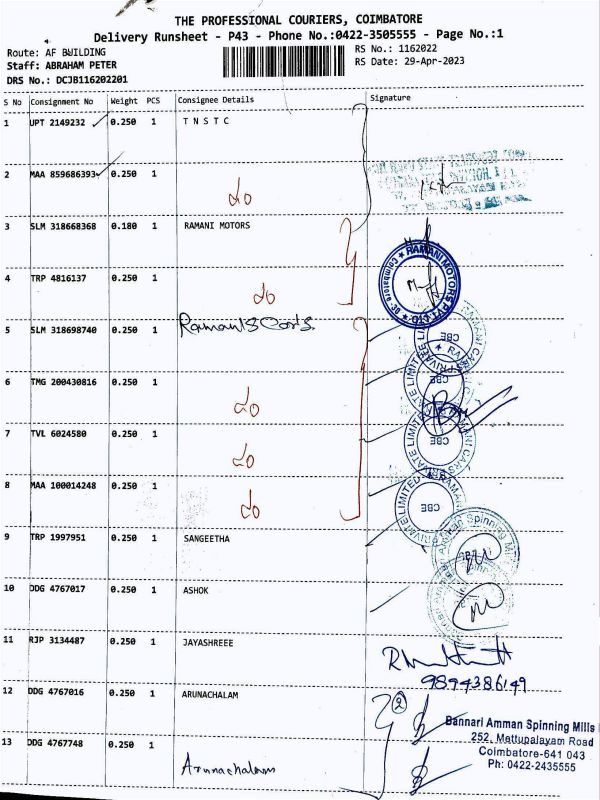 THE PROFESSIONAL COURIERS, COIMBATORE
Delivery Runsheet - P43 - Phone No.:0422-3505555 - Page No.:1
Route: AF BUILDING
RS No.: 1162022
Staff: ABRAHAM PETER
RS Date: 29-Apr-2023
DRS No.: DCJB116202201
S No Consignment No Weight PCS Consignee Details Signature
1 UPT 2149232 0.250 1 T N S T C
2 MAA 859686393 0.250 1
do
3 SLM 318668368 0.180 1 RAMANI MOTORS
RAMANI MOTORS
Coimbatore
4 TRP 4816137 0.250 1
do
5 SLM 318698740 0.250 1 Ramani's Cars.
RAMANI CARS PRIVATE LIMITED
CBE
6 TMG 200430816 0.250 1
do
CBE
7 TVL 6024580 0.250 1
do
RAMANI CARS PRIVATE LIMITED
CBE
8 MAA 100014248 0.250 1
do
CBE
9 TRP 1997951 0.250 1 SANGEETHA
Amman Spinning Mills
10 DDG 4767017 0.250 1 ASHOK
11 RJP 3134487 0.250 1 JAYASHREEE
9894386149
12 DDG 4767016 0.250 1 ARUNACHALAM
2
Bannari Amman Spinning Mills
252, Mettupalayam Road
Coimbatore-641 043
Ph: 0422-2435555
13 DDG 4767748 0.250 1
Arunachalam